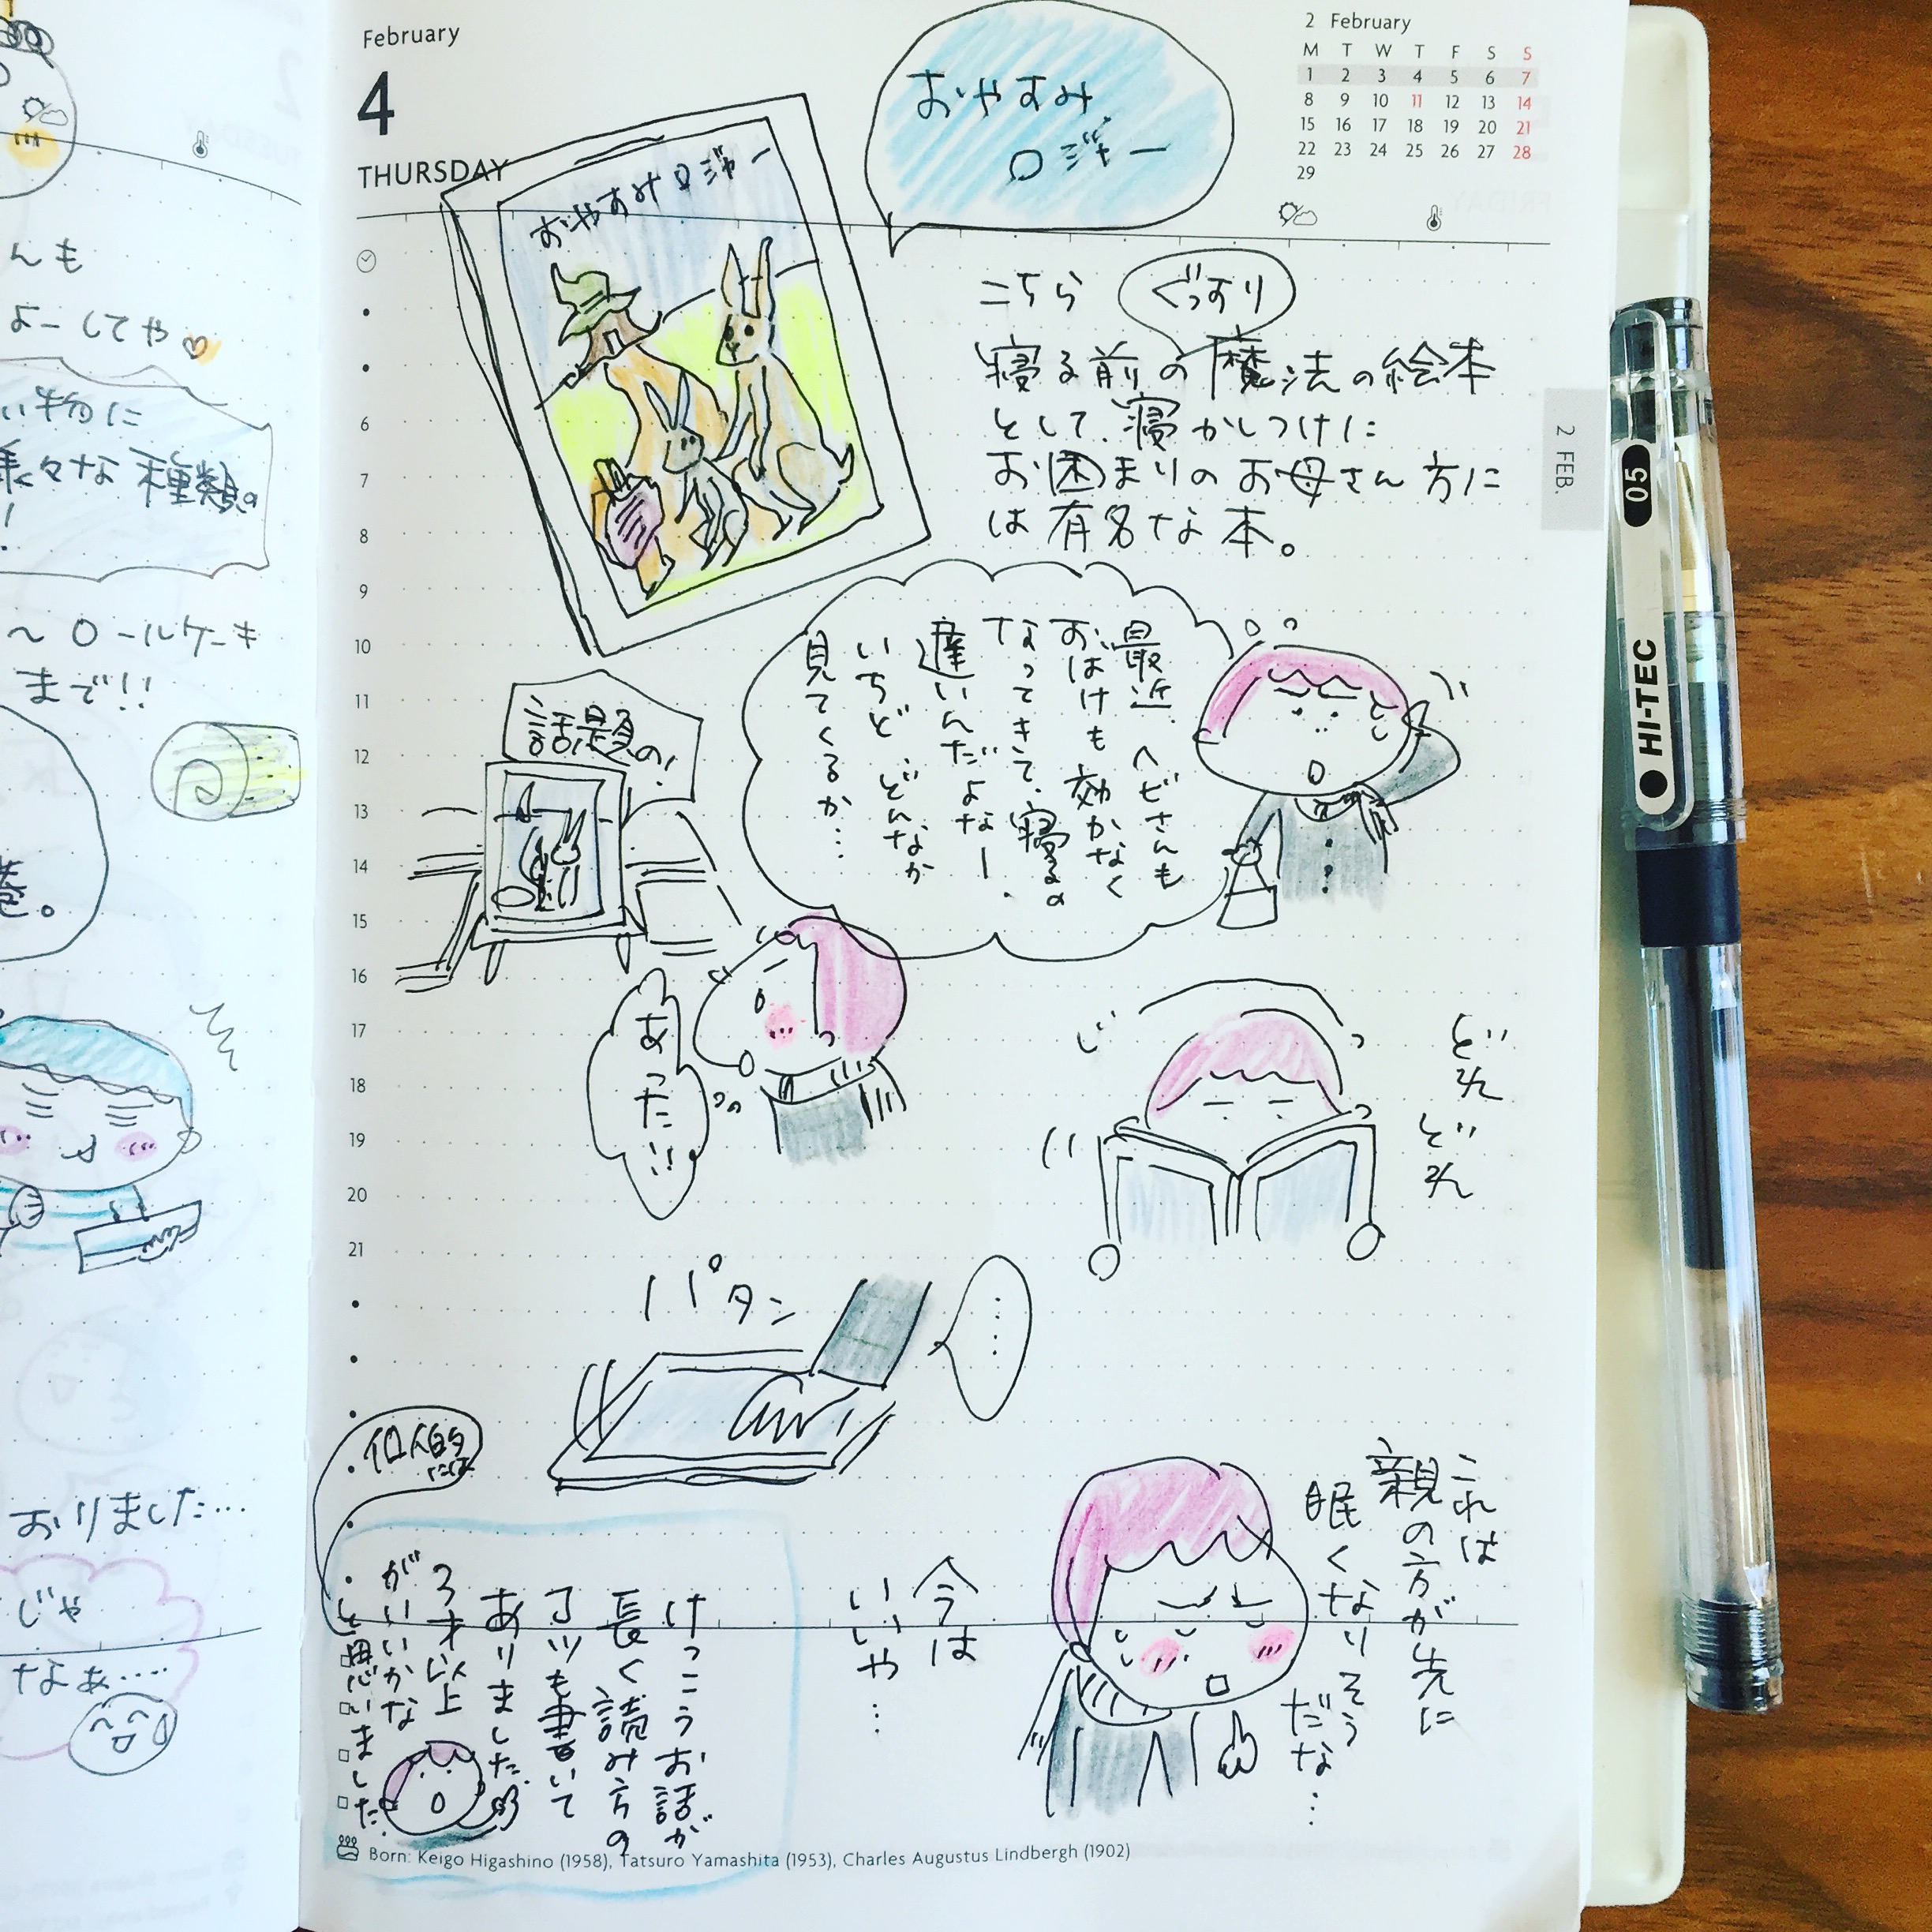 February
4
THURSDAY
おやすみ
ロジャー
2 February
M T W T F S S
1 2 3 4 5 6 7
8 9 10 11 12 13 14
15 16 17 18 19 20 21
22 23 24 25 26 27 28
29
おやすみロジャー
こちら
ぐっすり
寝る前の魔法の絵本
として、寝かしつけに
お困まりのお母さん方に
は有名な本。
2 FEB.
最近、ヘビさんも
おばけも効かなく
なってきて、寝るの
遅いんだよなー、
いちど、どんなか
見てくるか…
話題の!
あった!!
どれ
どれ
パタン
……
これは
親の方が先に
眠くなりそう
だな…
今は
いいや…
個人的には
けっこうお話が
長く読み方の
コツも書いて
ありました。
3才以上
がいいかな
と思いました。
6
7
8
9
10
11
12
13
14
15
16
17
18
19
20
21
Born: Keigo Higashino (1958), Tatsuro Yamashita (1953), Charles Augustus Lindbergh (1902)
んも
よーしてや♡
い物に
様々な種類の
!
〜ロールケーキ
まで!!
巻。
おりました…
じゃ
なぁ……
05
HI-TEC